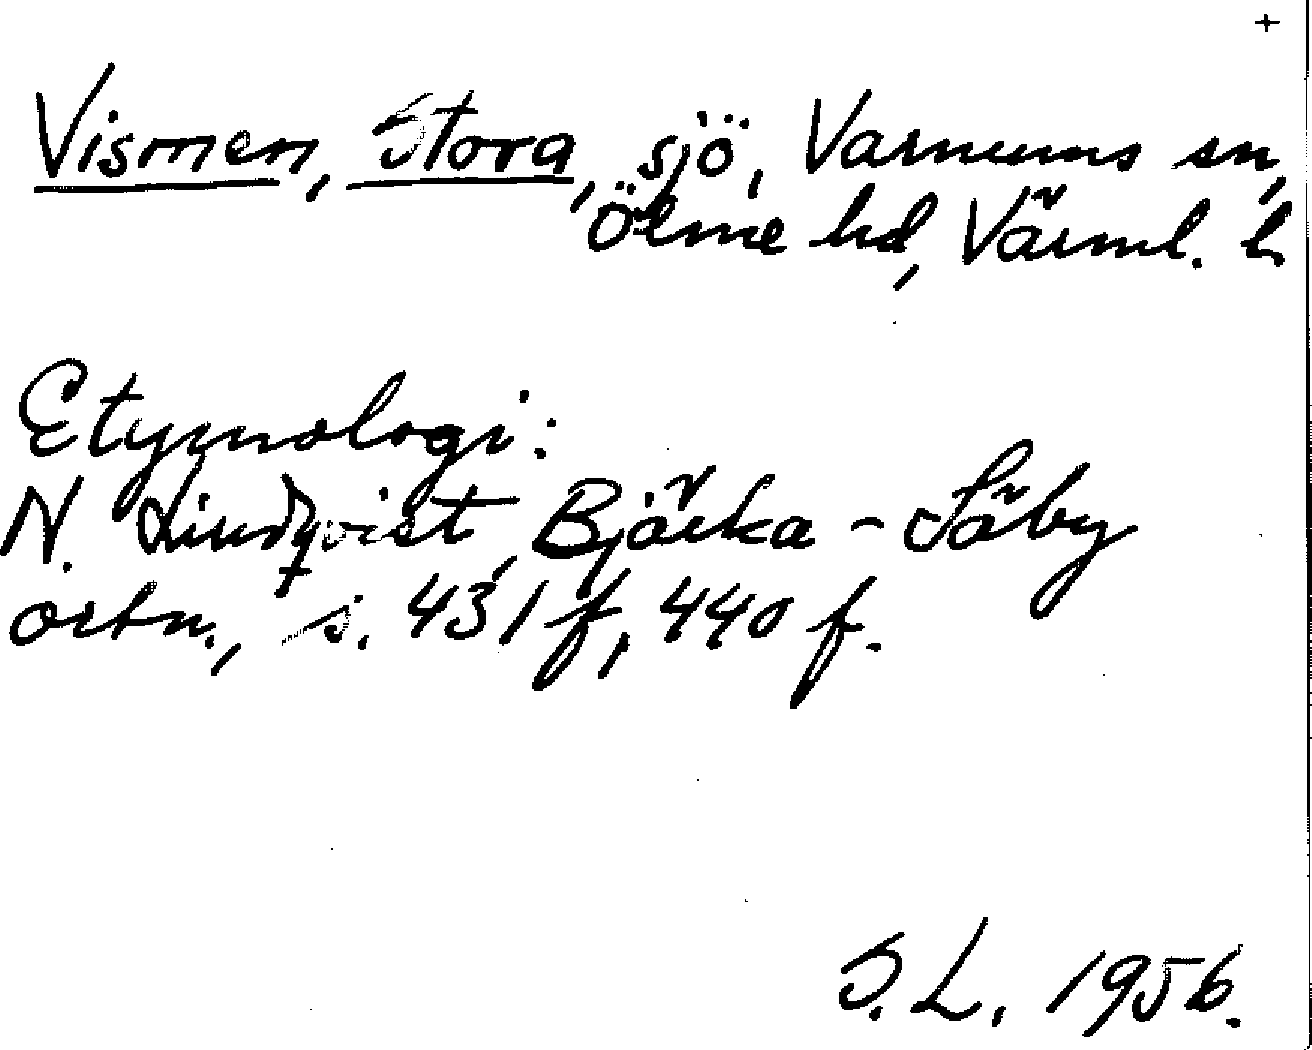 +
Vismen, Stora, sjö, Varnums sn,
Ölme hd, Värml. l.
Etymologi:
N. Lindqvist, Bjärka-Säby
ortn., s. 431 f, 440 f.
S. L. 1956.